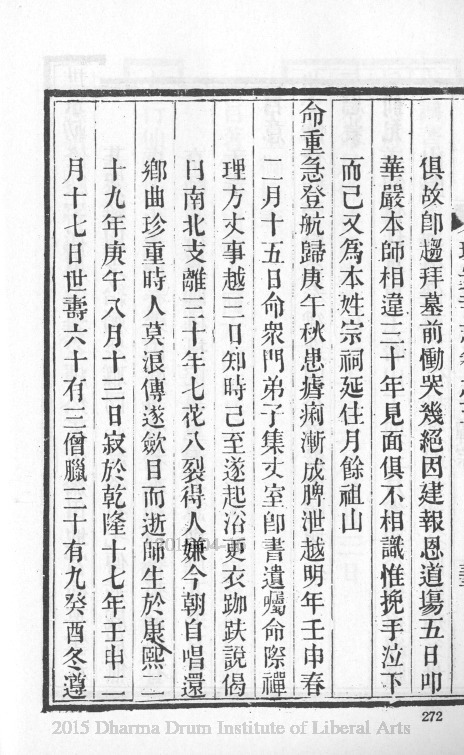 俱故卽趨拜墓前慟哭幾絕因建報恩道塲五日叩
華嚴本師相違三十年見面俱不相識惟挽手泣下
而已又爲本姓宗祠延住月餘祖山
命重急登航歸庚午秋患瘧痢漸成脾泄越明年壬申春
二月十五日命衆門弟子集丈室卽書遺囑命際禪
理方丈事越三日知時己至遂起浴更衣跏趺說偈
曰南北支離三十年七花八裂得人嫌今朝自唱還
鄉曲珍重時人莫浪傳遂歛目而逝師生於康熙二
十九年庚午八月十三日寂於乾隆十七年壬申二
月十七日世壽六十有三僧臘三十有九癸酉冬遵
272
2015 Dharma Drum Institute of Liberal Arts